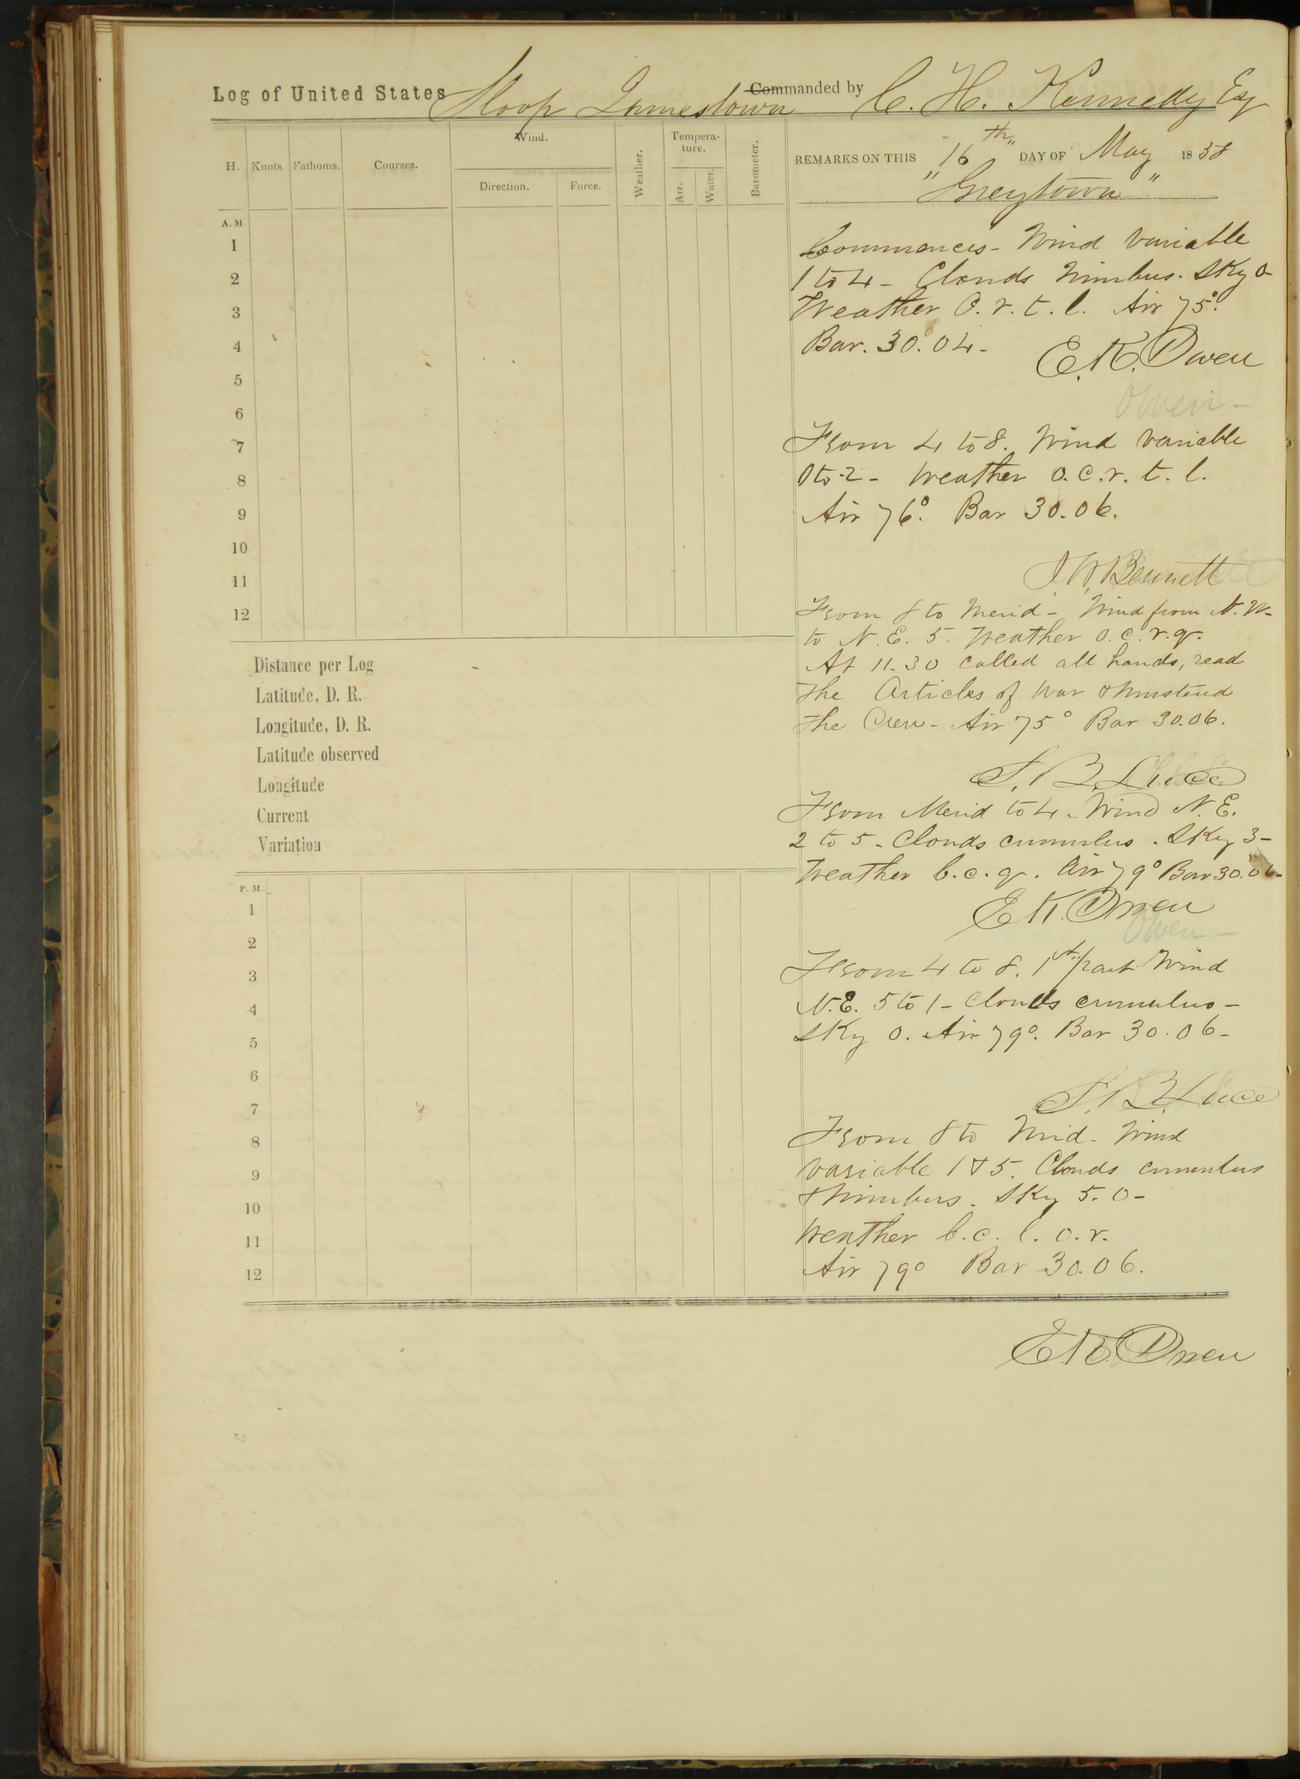 Log of United States Sloop Jamestown Commanded by C. H. Kennedy Esq
H. Knots Fathoms. Courses. Wind. Direction. Force. Weather. Tempera-ture. Air. Water. Barometer.
REMARKS ON THIS 16th DAY OF May 1858
"Greytown"
A. M.
1
2
3
4
5
6
7
8
9
10
11
12
Commences - Wind variable
1 to 4 - Clouds Nimbus. Sky 0-
Weather O. r. t. l. Air 75°.
Bar. 30.04-
E. K. Owen
Owen-
From 4 to 8. Wind variable
0 to 2 - Weather o. c. r. t. l.
Air 76°. Bar 30.06.
J. W. Bennett
From 8 to Merid - Wind from N. W-
to N. E. 5. Weather o. c. r. q.
At 11.30 called all hands, read
the Articles of War & mustered
the Crew - Air 75° Bar 30.06.
S. B. Luce
Distance per Log
Latitude, D. R.
Longitude, D. R.
Latitude observed
Longitude
Current
Variation
From Merid to 4. Wind N. E.
2 to 5 - Clouds cumulus. Sky 3-
Weather b. c. q. Air 79° Bar 30.06-
E K. Owen
Owen-
P. M.
1
2
3
4
5
6
7
8
9
10
11
12
From 4 to 8. 1st part Wind
N. E. 5 to 1 - Clouds cumulus -
Sky 0. Air 79°. Bar 30.06-
S. B. Luce
From 8 to Mid - Wind
variable 1 & 5. Clouds cumulus
& Nimbus. Sky 5. 0-
Weather b. c. l. o. r.
Air 79° Bar 30.06.
E. K. Owen